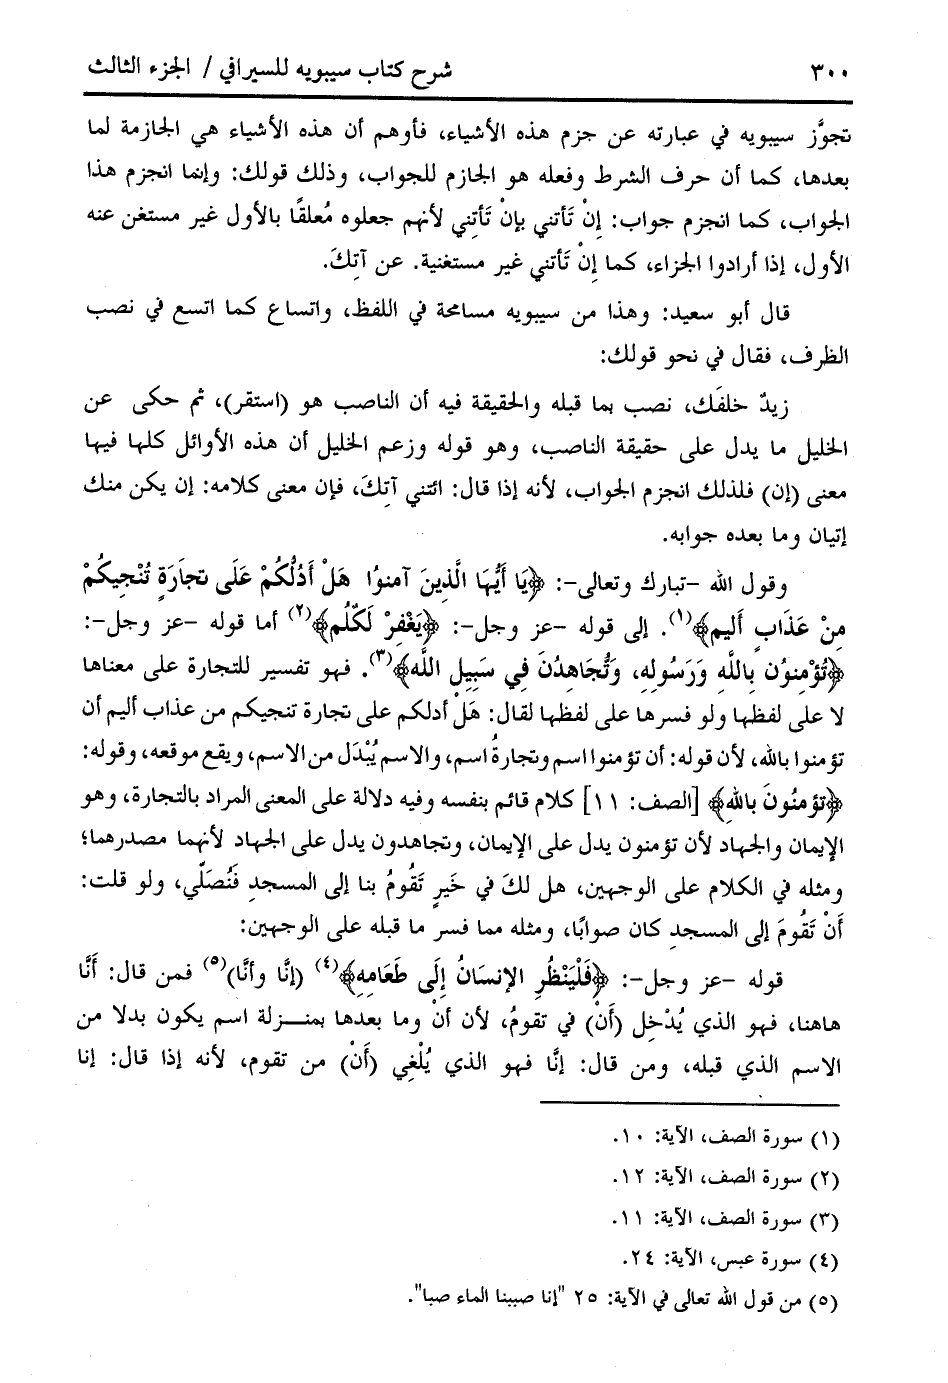 ٣٠٠ شرح كتاب سيبويه للسيرافي / الجزء الثالث
تجوَّز سيبويه في عبارته عن جزم هذه الأشياء، فأوهم أن هذه الأشياء هي الجازمة لما
بعدها، كما أن حرف الشرط وفعله هو الجازم للجواب، وذلك قولك: وإنما انجزم هذا
الجواب، كما انجزم جواب: إنْ تَأتني بإنْ تَأتِني لأنهم جعلوه مُعلقًا بالأول غير مستغن عنه
الأول، إذا أرادوا الجزاء، كما إنْ تَأتني غير مستغنية. عن آتِكَ.
قال أبو سعيد: وهذا من سيبويه مسامحة في اللفظ، واتساع كما اتسع في نصب
الظرف، فقال في نحو قولك:
زيدٌ خلفَك، نصب بما قبله والحقيقة فيه أن الناصب هو (استقر)، ثم حكى عن
الخليل ما يدل على حقيقة الناصب، وهو قوله وزعم الخليل أن هذه الأوائل كلها فيها
معنى (إن) فلذلك انجزم الجواب، لأنه إذا قال: ائتني آتِكَ، فإن معنى كلامه: إن يكن منك
إتيان وما بعده جوابه.
وقول الله –تبارك وتعالى–: ﴿يَا أَيُّهَا الَّذِينَ آمنوُا هَلْ أَدُلُّكُمْ عَلَى تجاَرَةٍ تُنْجيكُمْ
مِنْ عَذَابٍ أَليم﴾(١). إلى قوله –عز وجل–: ﴿يَغْفِرْ لَكُلُم﴾(٢) أما قوله –عز وجل–:
﴿تُؤْمِنوُن بِاللَّهِ وَرَسُولِهِ، وَتُّجَاهِدُنَ فِي سَبِيلِ اللَّه﴾(٣). فهو تفسير للتجارة على معناها
لا على لفظها ولو فسرها على لفظها لقال: هَلْ أدلكم على تجارة تنجيكم من عذاب أليم أن
تؤمنوا بالله، لأن قوله: أن تؤمنوا اسم وتجارةُ اسم، والاسم يُبْدَل من الاسم، ويقع موقعه، وقوله:
﴿تؤمنُونَ باللهِ﴾ [الصف: ١١] كلام قائم بنفسه وفيه دلالة على المعنى المراد بالتجارة، وهو
الإيمان والجهاد لأن تؤمنون يدل على الإيمان، وتجاهدون يدل على الجهاد لأنهما مصدرهما؛
ومثله في الكلام على الوجهين، هل لكَ في خَيرٍ تَقُومُ بنا إلى المسجدِ فَنُصَلّي، ولو قلت:
أَنْ تَقُومَ إلى المسجدِ كان صوابًا، ومثله مما فسر ما قبله على الوجهين:
قوله –عز وجل–: ﴿فَلْيَنْظُرِ الإنسَانُ إلَى طَعَامِهِ﴾(٤) (إنَّا وأنَّا)(٥) فمن قال: أَنَّا
هاهنا، فهو الذي يُدْخِل (أَنْ) في تقومُ، لأن أنْ وما بعدها بمنـزلة اسم يكون بدلا من
الاسم الذي قبله، ومن قال: إنَّا فهو الذي يُلْغِي (أَنْ) من تقوم، لأنه إذا قال: إنا
(١) سورة الصف، الآية: ١٠.
(٢) سورة الصف، الآية: ١٢.
(٣) سورة الصف، الآية: ١١.
(٤) سورة عبس، الآية: ٢٤.
(٥) من قول الله تعالى في الآية: ٢٥ "إنا صببنا الماء صبا".